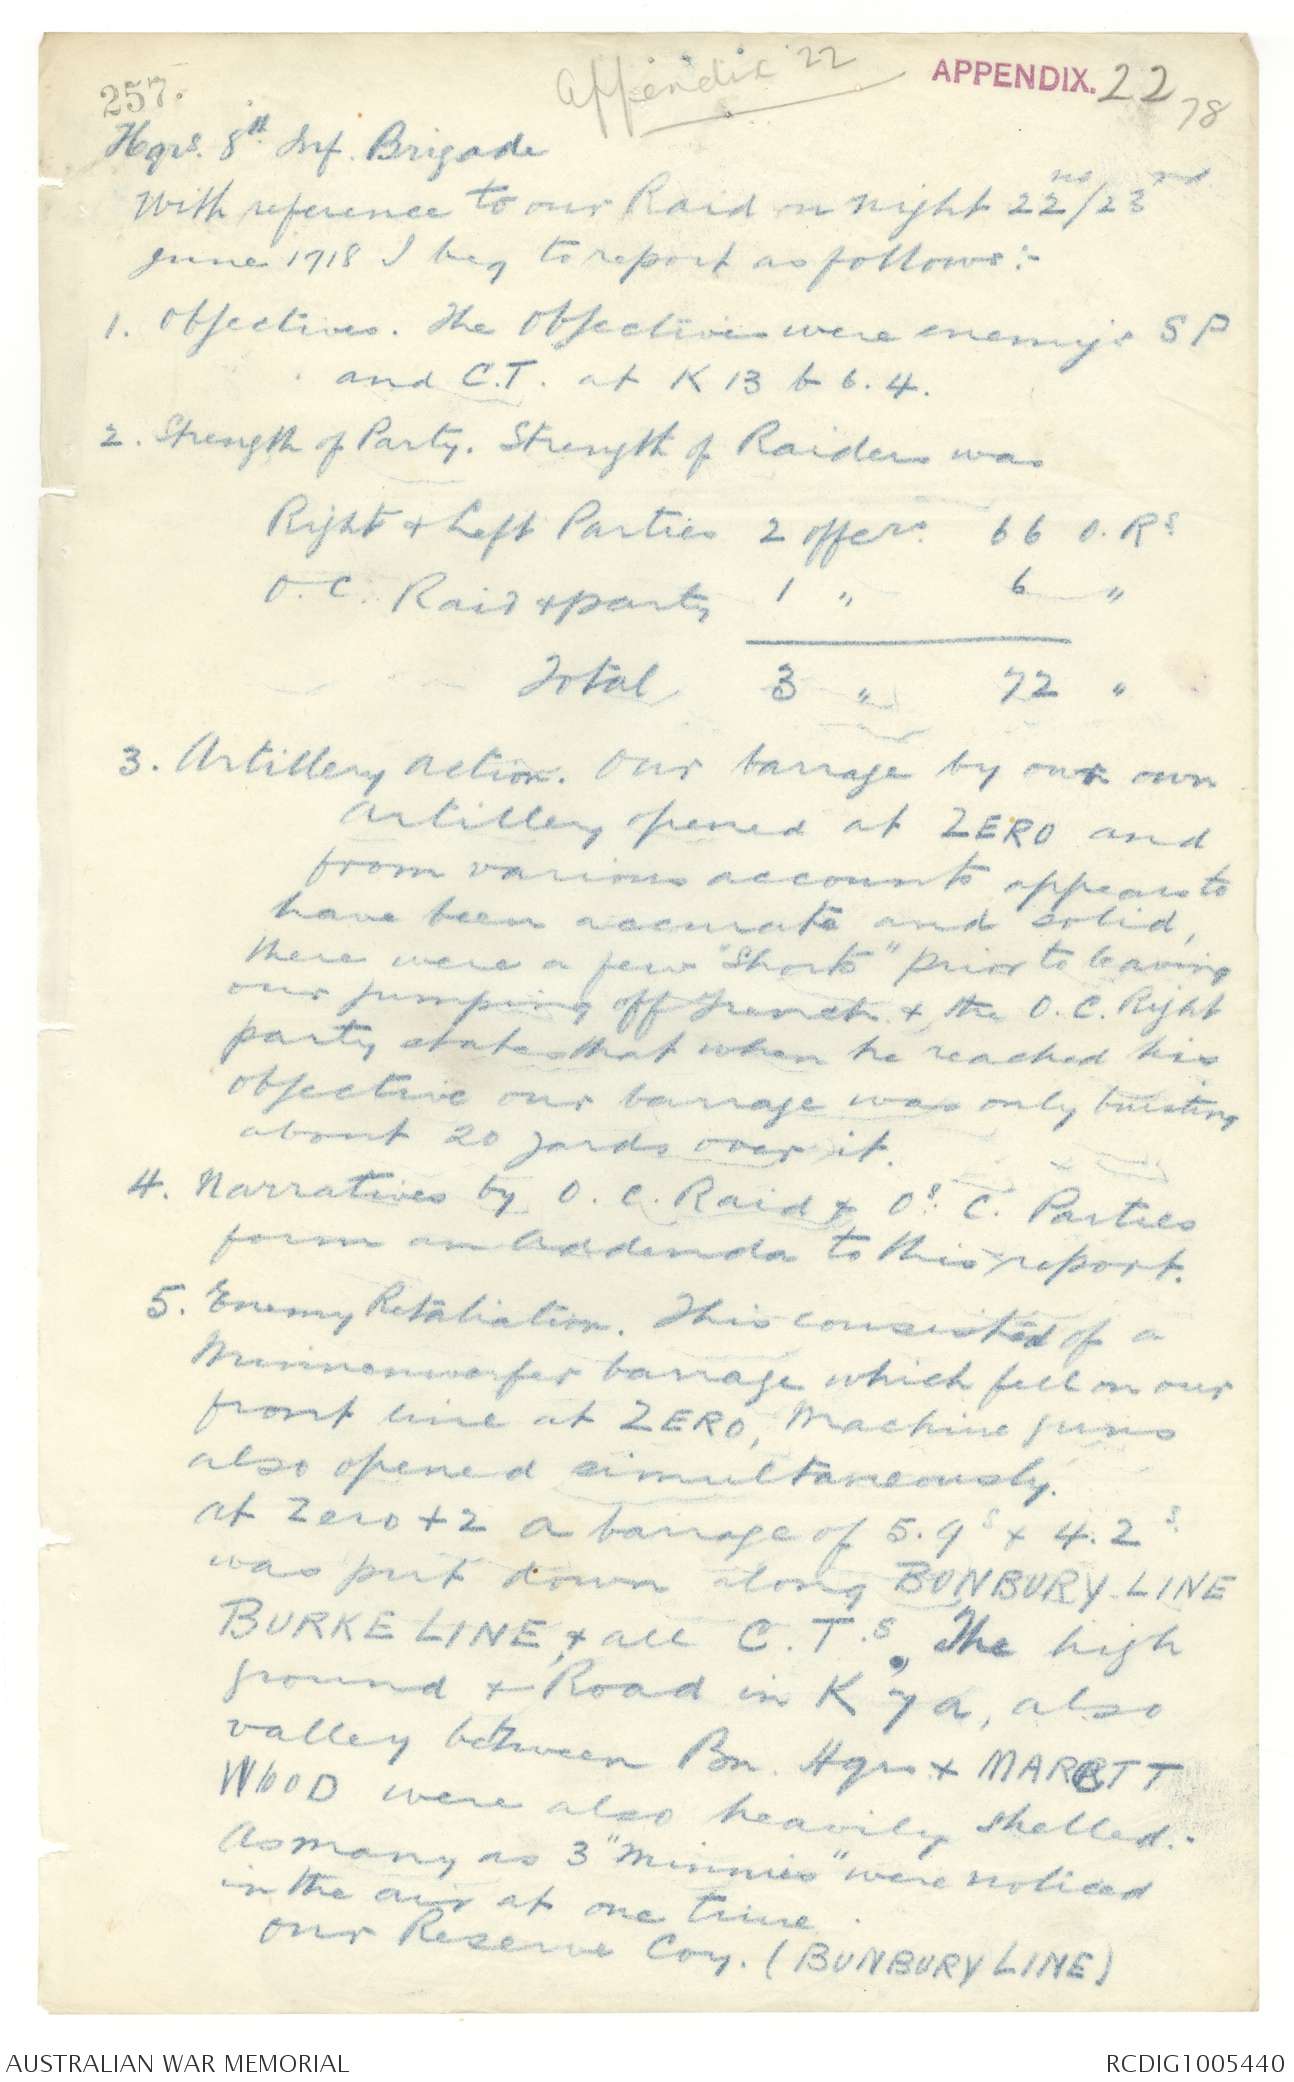 257.
Appendix 22
APPENDIX. 22
78
Hqrs. 8th. Inf. Brigade
With reference to our Raid on night 22nd/23rd
June 1918 I beg to report as follows:-
1. Objectives. The Objectives were enemy's S P
and C.T. at K 13 b 6.4.
2. Strength of Party. Strength of Raiders was
Right & Left Parties 2 offcrs. 66 O. Rs
O.C. Raid & party 1 " 6 "
Total 3 " 72 "
3. Artillery action. Our barrage by our own
artillery opened at ZERO and
from various accounts appears to
have been accurate and solid,
there were a few "Shorts" prior to leaving
our jumping off Trench & the O.C. Right
party states that when he reached his
objective our barrage was only bursting
about 20 yards over it.
4. Narratives by O.C. Raid & Os. C. Parties
form an Addenda to this report.
5. Enemy Retaliation. This consisted of a
Minnenwerfer barrage which fell on our
front line at ZERO, Machine guns
also opened simultaneously.
at Zero + 2 a barrage of 5.9s & 4.2s.
was put down along BUNBURY LINE
BURKE LINE, & all C.T.s, The high
ground & Road in K 7 a, also
valley between Bn. Hqrs & MARETT
WOOD were also heavily shelled.
As many as 3 "Minnies" were noticed
in the air at one time.
Our Reserve Coy. (BUNBURY LINE)
AUSTRALIAN WAR MEMORIAL
RCDIG1005440